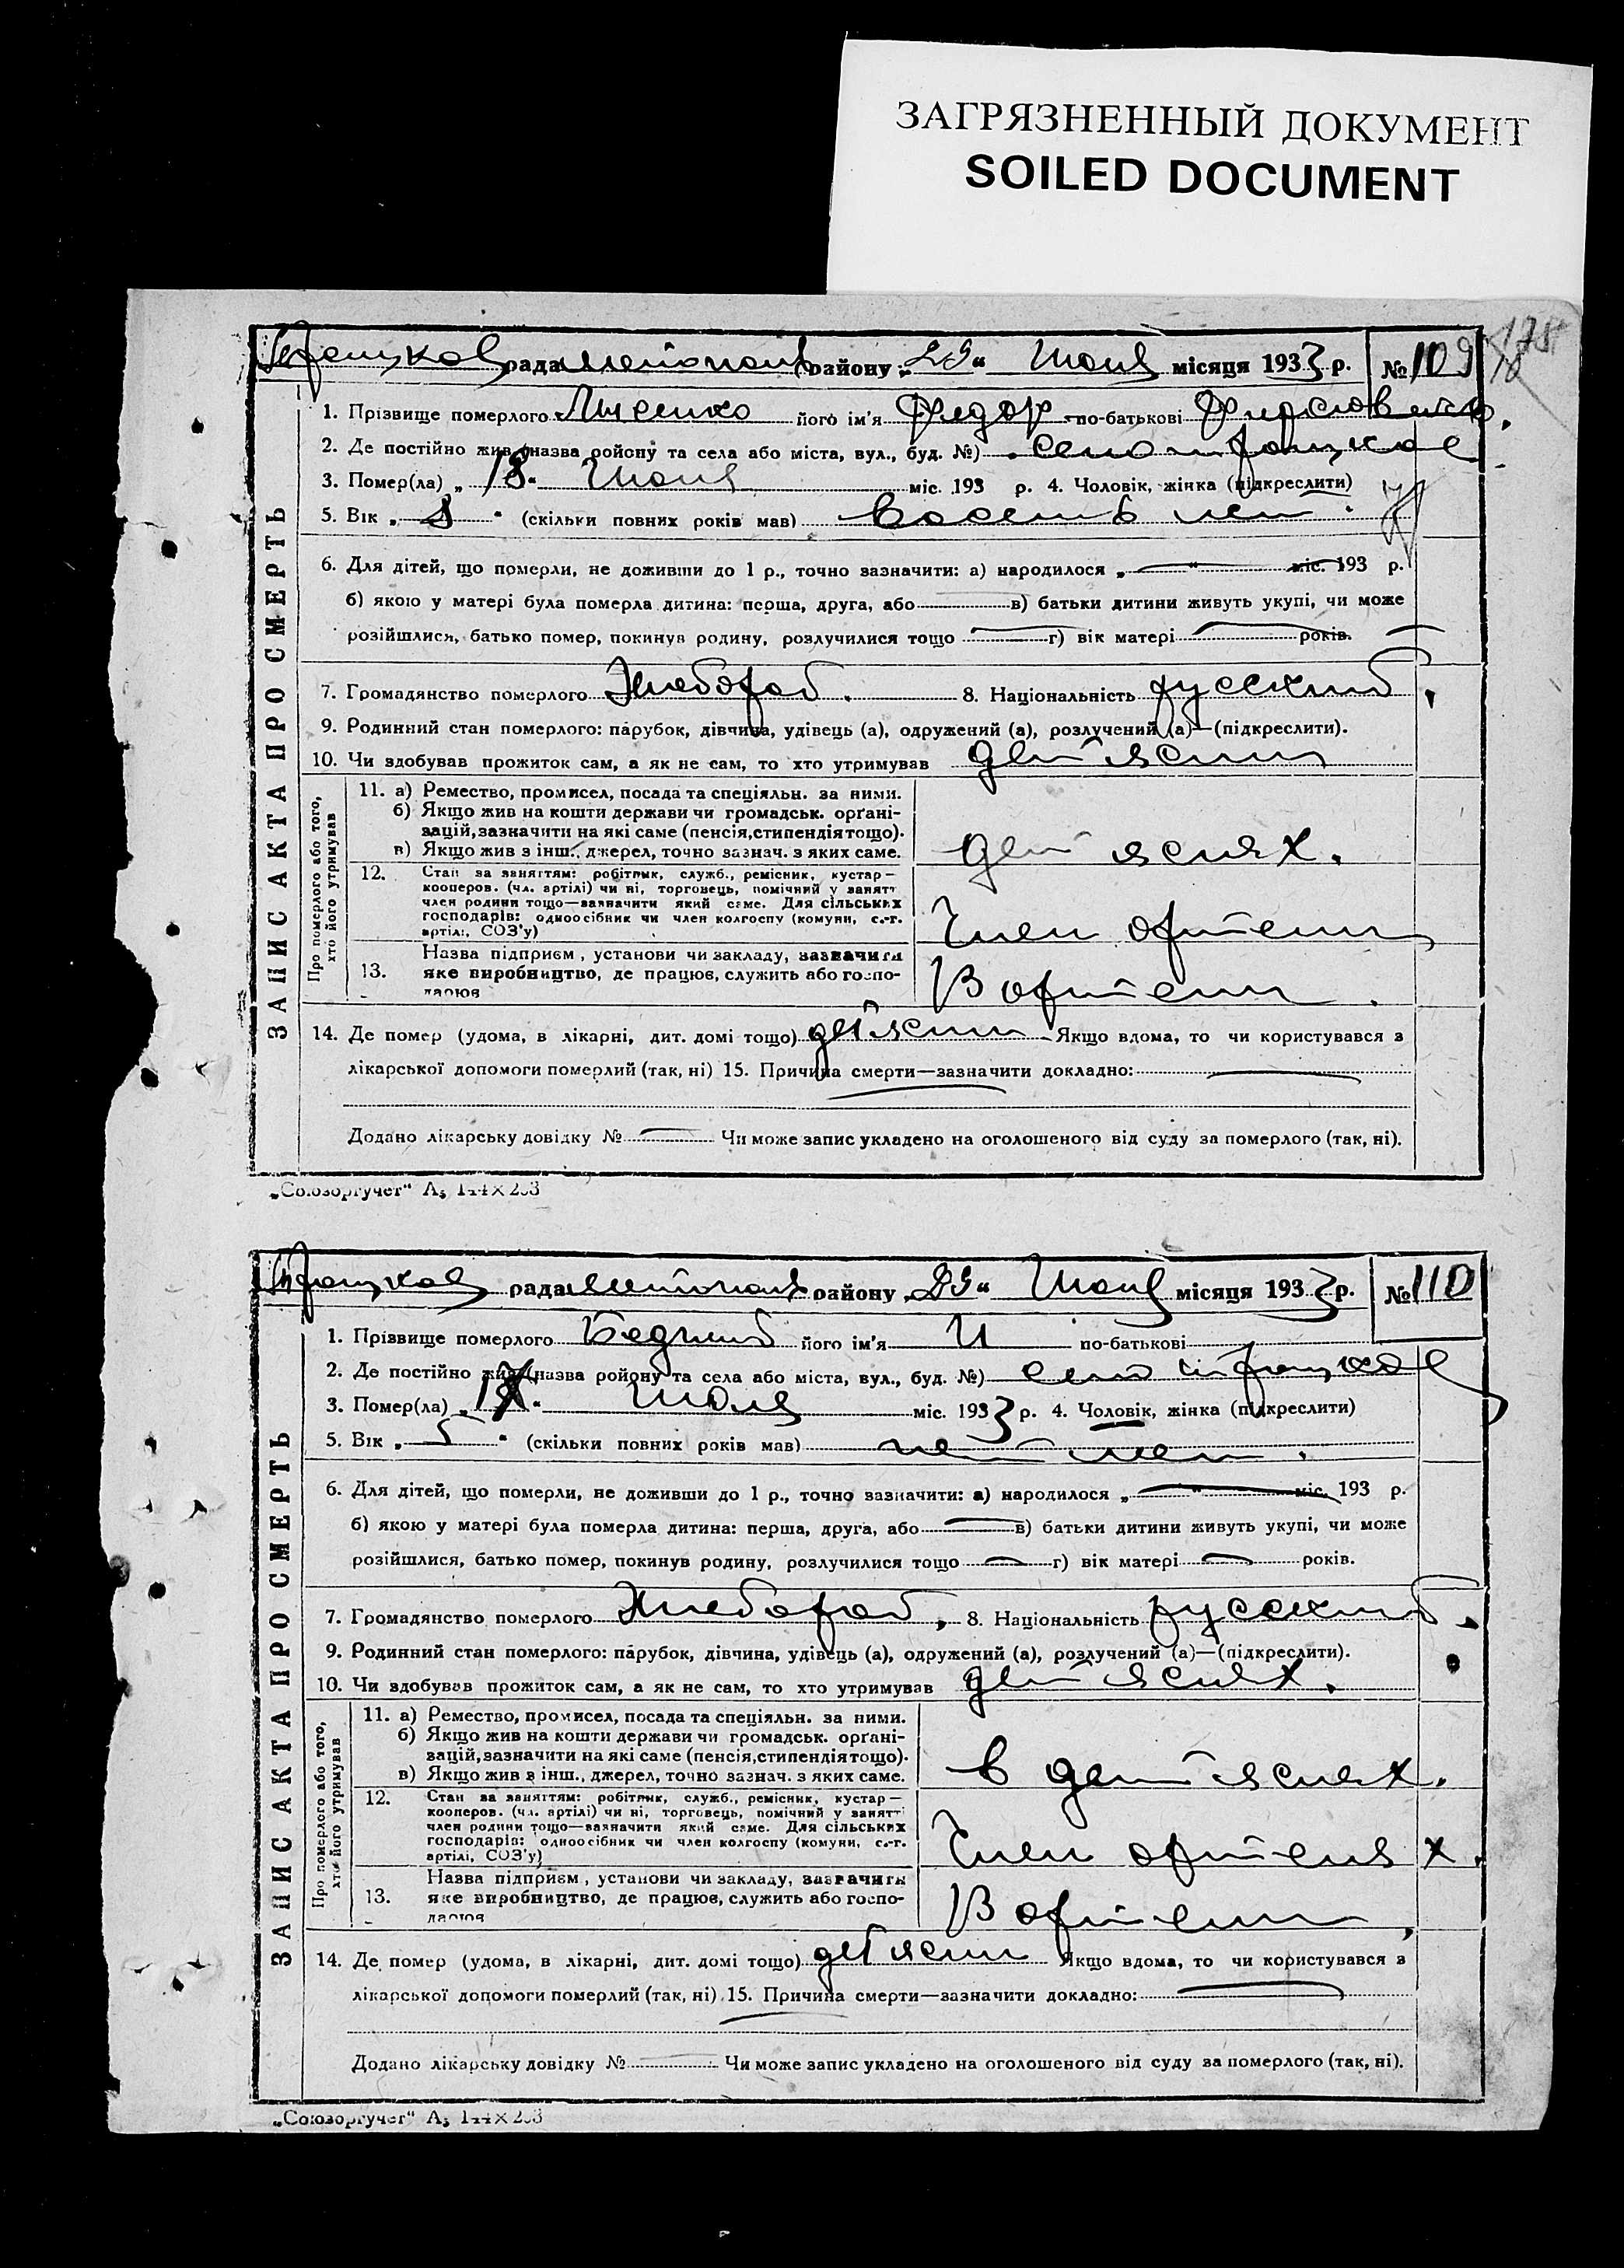 ЗАГРЯЗНЕННЫЙ ДОКУМЕНТ
SOILED DOCUMENT
рада району „29“ Июля місяця 1933 р. № 109
1. Прізвище померлого його ім'я Федор по-батькові
2. Де постійно жив (назва району та села або міста, вул., буд. №) село
3. Помер(ла) „18“ Июля міс. 193 р. 4. Чоловік, жінка (підкреслити)
5. Вік „8“ (скільки повних років мав) Восемь лет.
6. Для дітей, що померли, не доживши до 1 р., точно зазначити: а) народилося „ “ міс. 193 р.
б) якою у матері була померла дитина: перша, друга, або в) батьки дитини живуть укупі, чи може
розійшлися, батько помер, покинув родину, розлучилися тощо г) вік матері років.
7. Громадянство померлого Хлебороб. 8. Національність русский.
9. Родинний стан померлого: парубок, дівчина, удівець (а), одружений (а), розлучений (а)—(підкреслити).
10. Чи здобував прожиток сам, а як не сам, то хто утримував дет ясли
ЗАПИС АКТА ПРО СМЕРТЬ
Про померлого або того,
хто його утримував
11. а) Ремество, промисел, посада та спеціяльн. за ними.
б) Якщо жив на кошти держави чи громадськ. орґані-
зацій, зазначити на які саме (пенсія, стипендія тощо).
в) Якщо жив з інш., джерел, точно зазнач. з яких саме.
дет яслях.
12. Стан за заняттям: робітник, служб., ремісник, кустар—
кооперов. (чл. артілі) чи ні, торговець, помічний у занятт
член родини тощо—зазначити який саме. Для сільських
господарів: одноосібник чи член колгоспу (комуни, с.-г.
артілі, СОЗ'у)
Член артели
13. Назва підприєм, установи чи закладу, зазначити
яке виробництво, де працює, служить або госпо-
дарює
В артели.
14. Де помер (удома, в лікарні, дит. домі тощо) дет ясли Якщо вдома, то чи користувався з
лікарської допомоги померлий (так, ні) 15. Причина смерти—зазначити докладно:
Додано лікарську довідку № Чи може запис укладено на оголошеного від суду за померлого (так, ні).
„Союзоргучет“ А₅ 144×203
рада району „29“ Июля місяця 1933 р. № 110
1. Прізвище померлого Бедный його ім'я И по-батькові
2. Де постійно жив (назва району та села або міста, вул., буд. №) село
3. Помер(ла) Июля міс. 1933 р. 4. Чоловік, жінка (підкреслити)
5. Вік „5“ (скільки повних років мав) пет лет.
6. Для дітей, що померли, не доживши до 1 р., точно зазначити: а) народилося „ “ міс. 193 р.
б) якою у матері була померла дитина: перша, друга, або в) батьки дитини живуть укупі, чи може
розійшлися, батько помер, покинув родину, розлучилися тощо г) вік матері років.
7. Громадянство померлого Хлебороб, 8. Національність русский.
9. Родинний стан померлого: парубок, дівчина, удівець (а), одружений (а), розлучений (а)—(підкреслити).
10. Чи здобував прожиток сам, а як не сам, то хто утримував дет яслях.
ЗАПИС АКТА ПРО СМЕРТЬ
Про померлого або того,
хто його утримував
11. а) Ремество, промисел, посада та спеціяльн. за ними.
б) Якщо жив на кошти держави чи громадськ. орґані-
зацій, зазначити на які саме (пенсія, стипендія тощо).
в) Якщо жив з інш., джерел, точно зазнач. з яких саме.
в дет яслях.
12. Стан за заняттям: робітник, служб., ремісник, кустар—
кооперов. (чл. артілі) чи ні, торговець, помічний у занятт
член родини тощо—зазначити який саме. Для сільських
господарів: одноосібник чи член колгоспу (комуни, с.-г.
артілі, СОЗ'у)
Член артеля х.
13. Назва підприєм, установи чи закладу, зазначити
яке виробництво, де працює, служить або госпо-
дарює
В артели,
14. Де помер (удома, в лікарні, дит. домі тощо) дет ясли Якщо вдома, то чи користувався з
лікарської допомоги померлий (так, ні) 15. Причина смерти—зазначити докладно:
Додано лікарську довідку № Чи може запис укладено на оголошеного від суду за померлого (так, ні).
„Союзоргучет“ А₅ 144×203